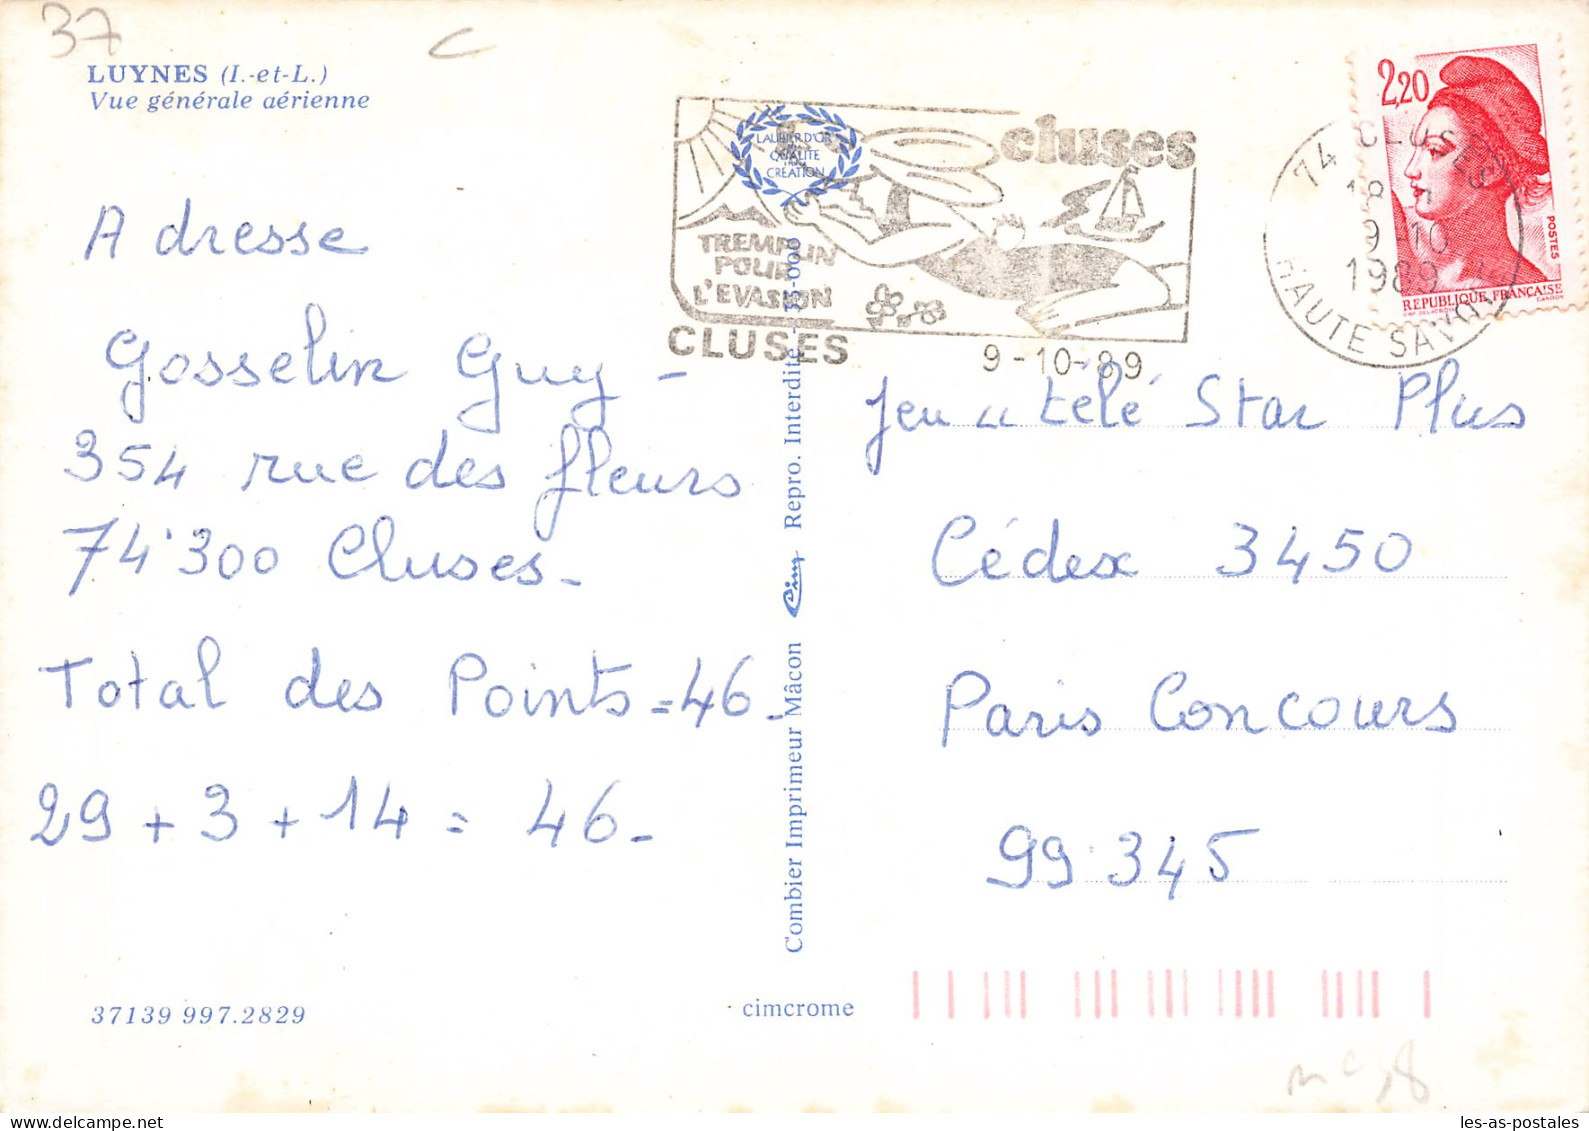 37
LUYNES (I.-et-L.)
Vue générale aérienne
A dresse
Gosselin Guy -
354 rue des fleurs
74'300 Cluses -
Total des Points = 46 -
29 + 3 + 14 = 46 -
37139 997.2829
cimcrome
Combier Imprimeur Mâcon Cim Repro. Interdite - 35-000
LAURIER D'OR
QUALITE
CRÉATION
cluses
TREMPLIN
POUR
L'EVASION
CLUSES
9-10-89
74 CLUSES
18 H
9-10
1989
HAUTE SAVOIE
2,20
POSTES
REPUBLIQUE FRANÇAISE
GANDON
Jeu " télé Star Plus
Cédex 3450
Paris Concours
99.345
les-as-postales